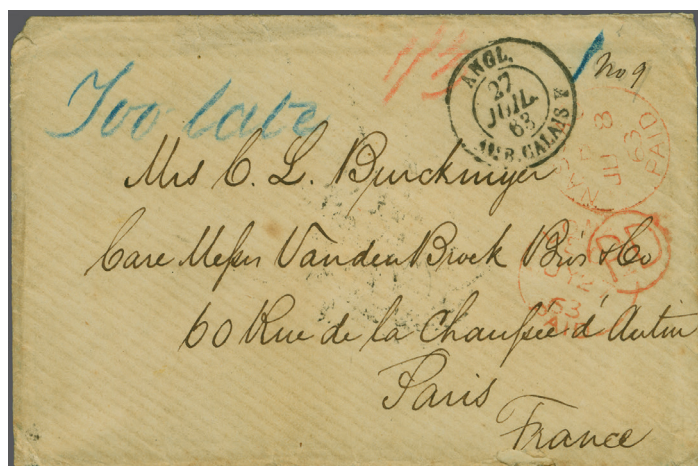 Too late
1/3
No 9
ANGL.
27
JUIL.
63
AMB. CALAIS
NA
JU 8
63
PAID
Mrs C. L. Burckmyer
Care Messrs VandenBroek Bros & Co
PD
63
PAID
60 Rue de la Chaussée d'Antin
Paris
France